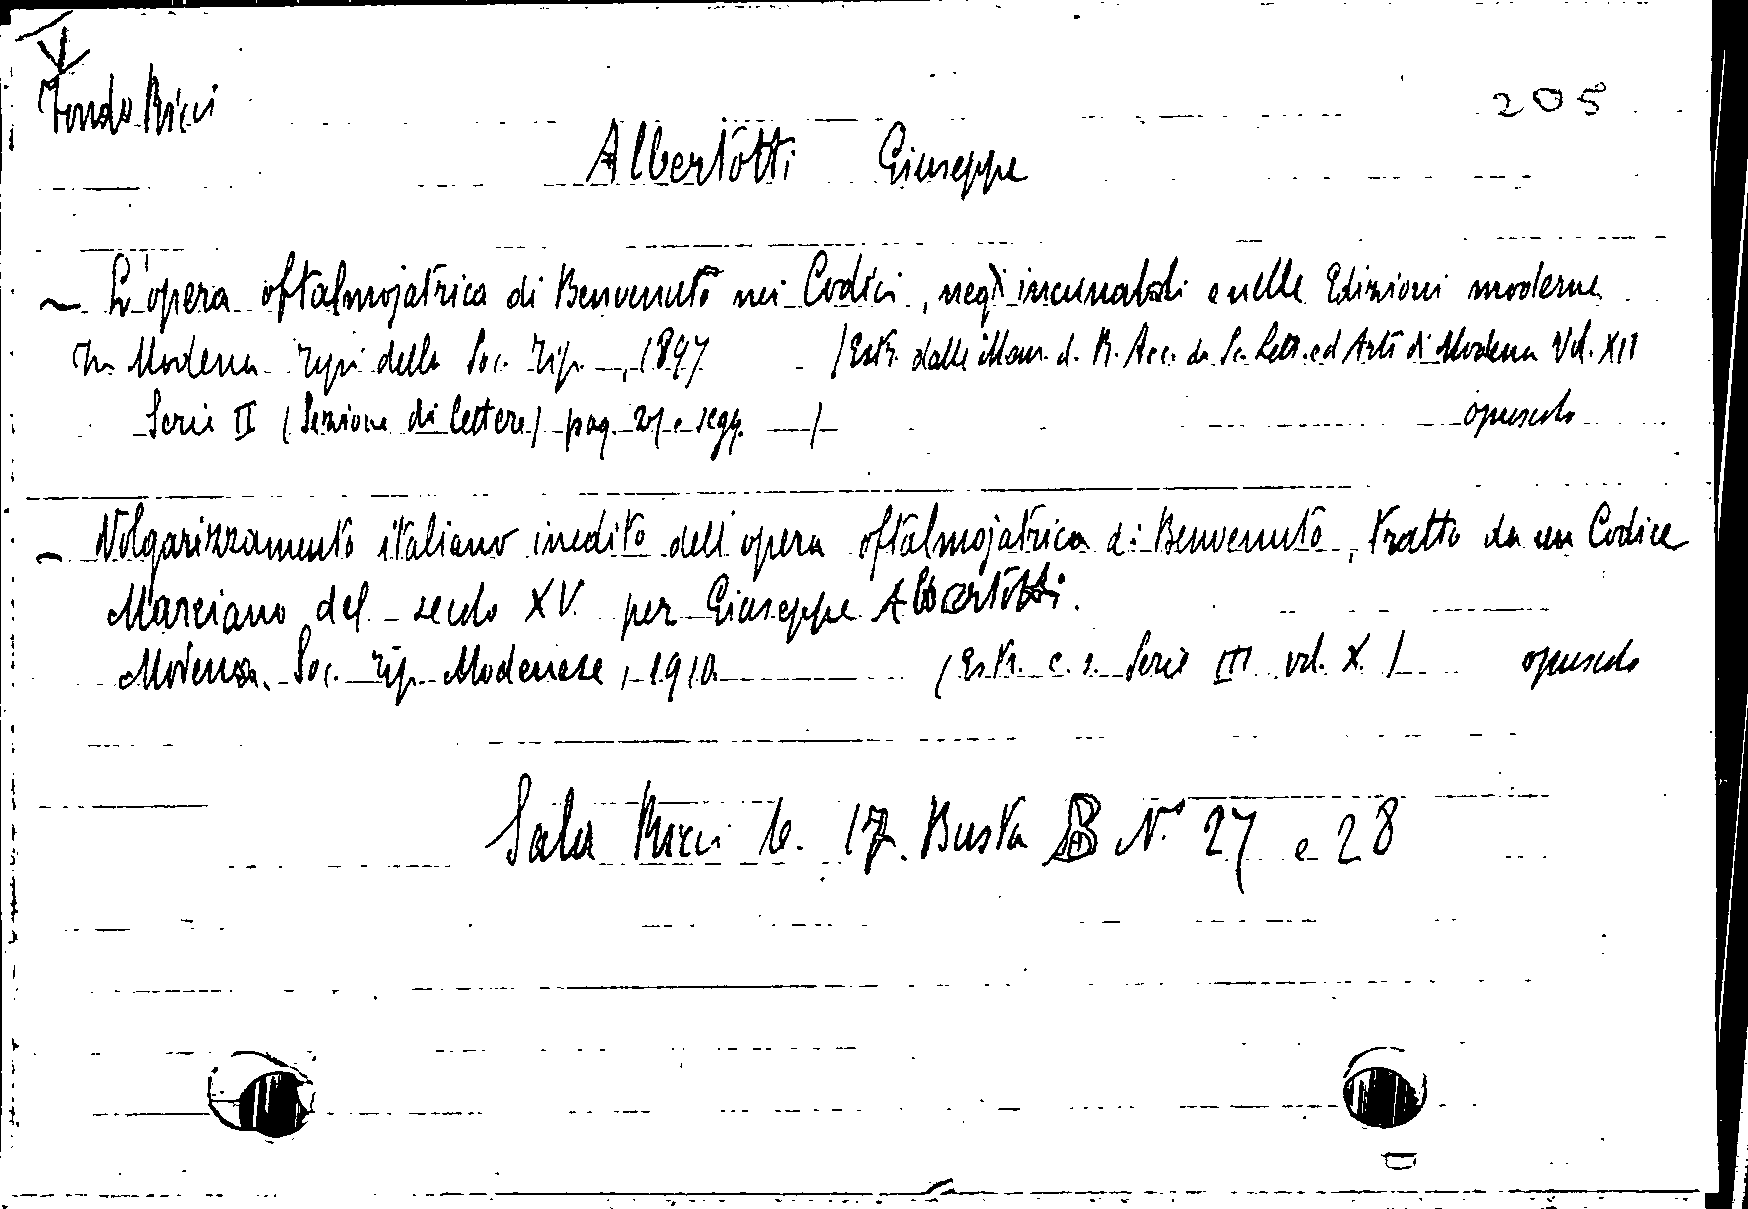 Fondo Ricci
205
Albertotti Giuseppe
~ L'opera oftalmojatrica di Benvenuto nei Codici, negli incunaboli e nelle Edizioni moderne
In Modena Typi della Soc. Tip. , 1897 (Estr. dalle Mem. d. R. Acc. di Sc. Lett. ed Arti di Modena Vol. XII
Serie II (Sezione di lettere) pag. 27 e segg. )
opuscolo
~ Volgarizzamento italiano inedito dell'opera oftalmojatrica di Benvenuto, tratto da un Codice
Marciano del secolo XV per Giuseppe Albertotti.
Modena. Soc. Tip. Modenese, 1910 (Estr. c. s. Serie III vol. X.) opuscolo
Sala Ricci 17. Busta B N.i 27 e 28